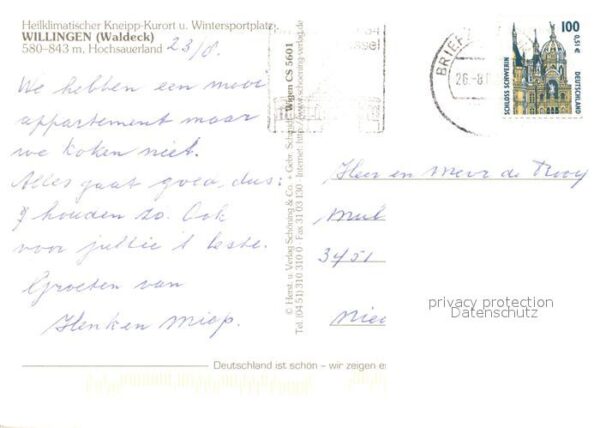 Heilklimatischer Kneipp-Kurort u. Wintersportplatz
WILLINGEN (Waldeck)
580-843 m. Hochsauerland
23/8.
We hebben een mooi
appartement maar
we koken niet.
Alles gaat goed, dus:
houden zo. Ook
voor jullie 't beste.
Groeten van
Henk en Miep.
© Herst. u. Verlag Schöning & Co. + Gebr. Schmidt
Tel. (04 51) 310 310 0 · Fax 31 03 130 · Internet: http://www.schoening-verlag.de
Wigen CS 5601
BRIEFZ
26.-8.
100
0,51 €
SCHLOSS SCHWERIN
DEUTSCHLAND
Heer en Mevr de Rooy
Mul
3451
Nie
privacy protection
Datenschutz
Deutschland ist schön – wir zeigen e